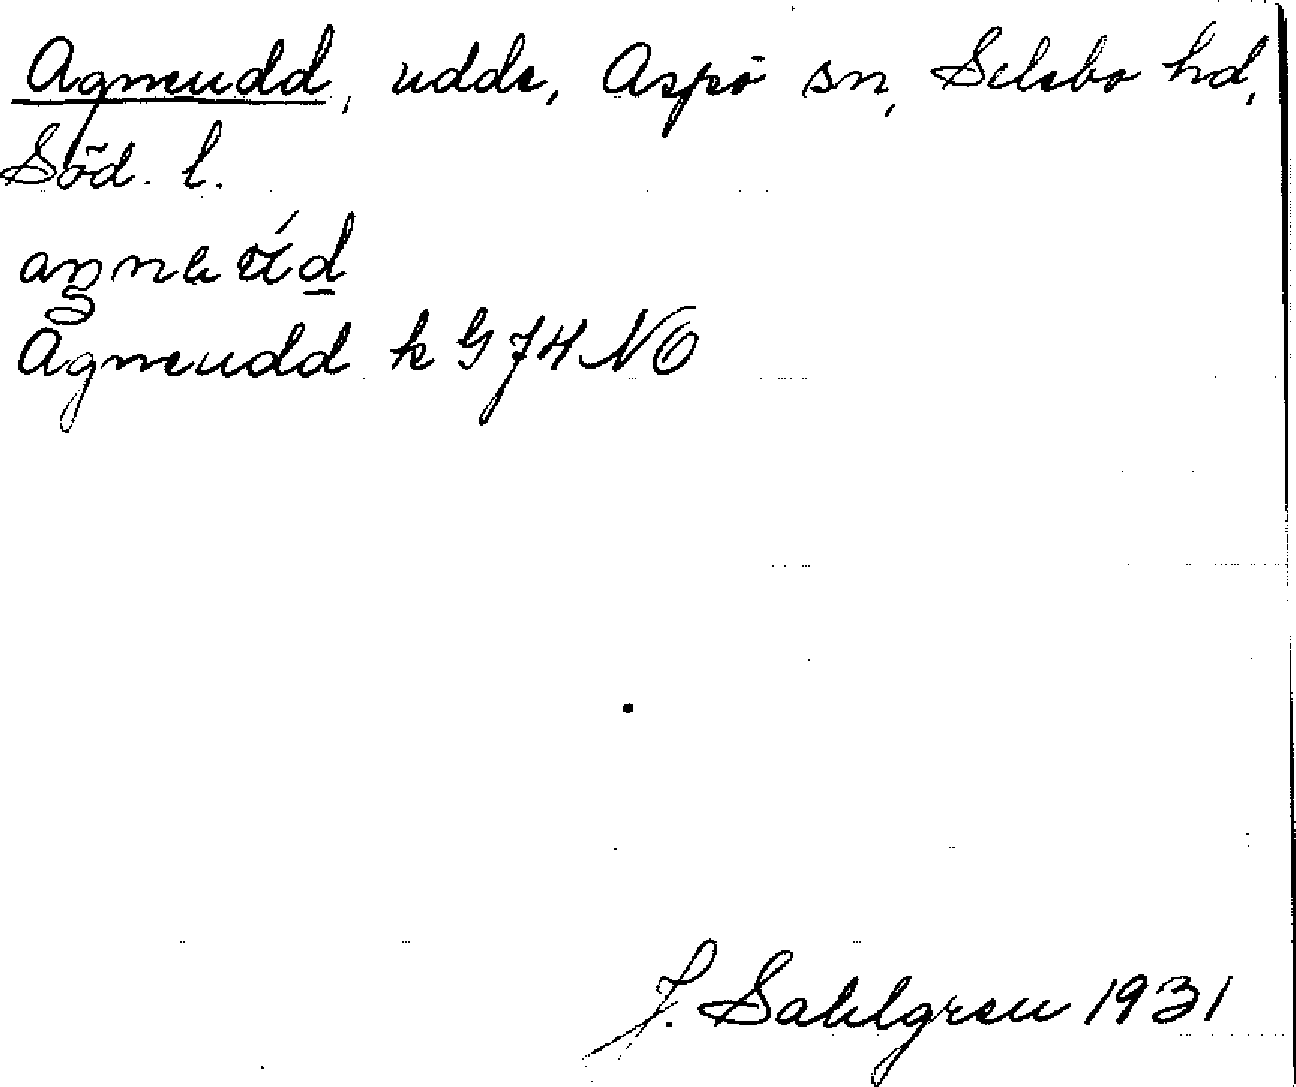 Agneudd, udde, Aspö sn, Selebo hd,
Söd. l.
Agneudd k G 74 NO
J. Sahlgren 1931